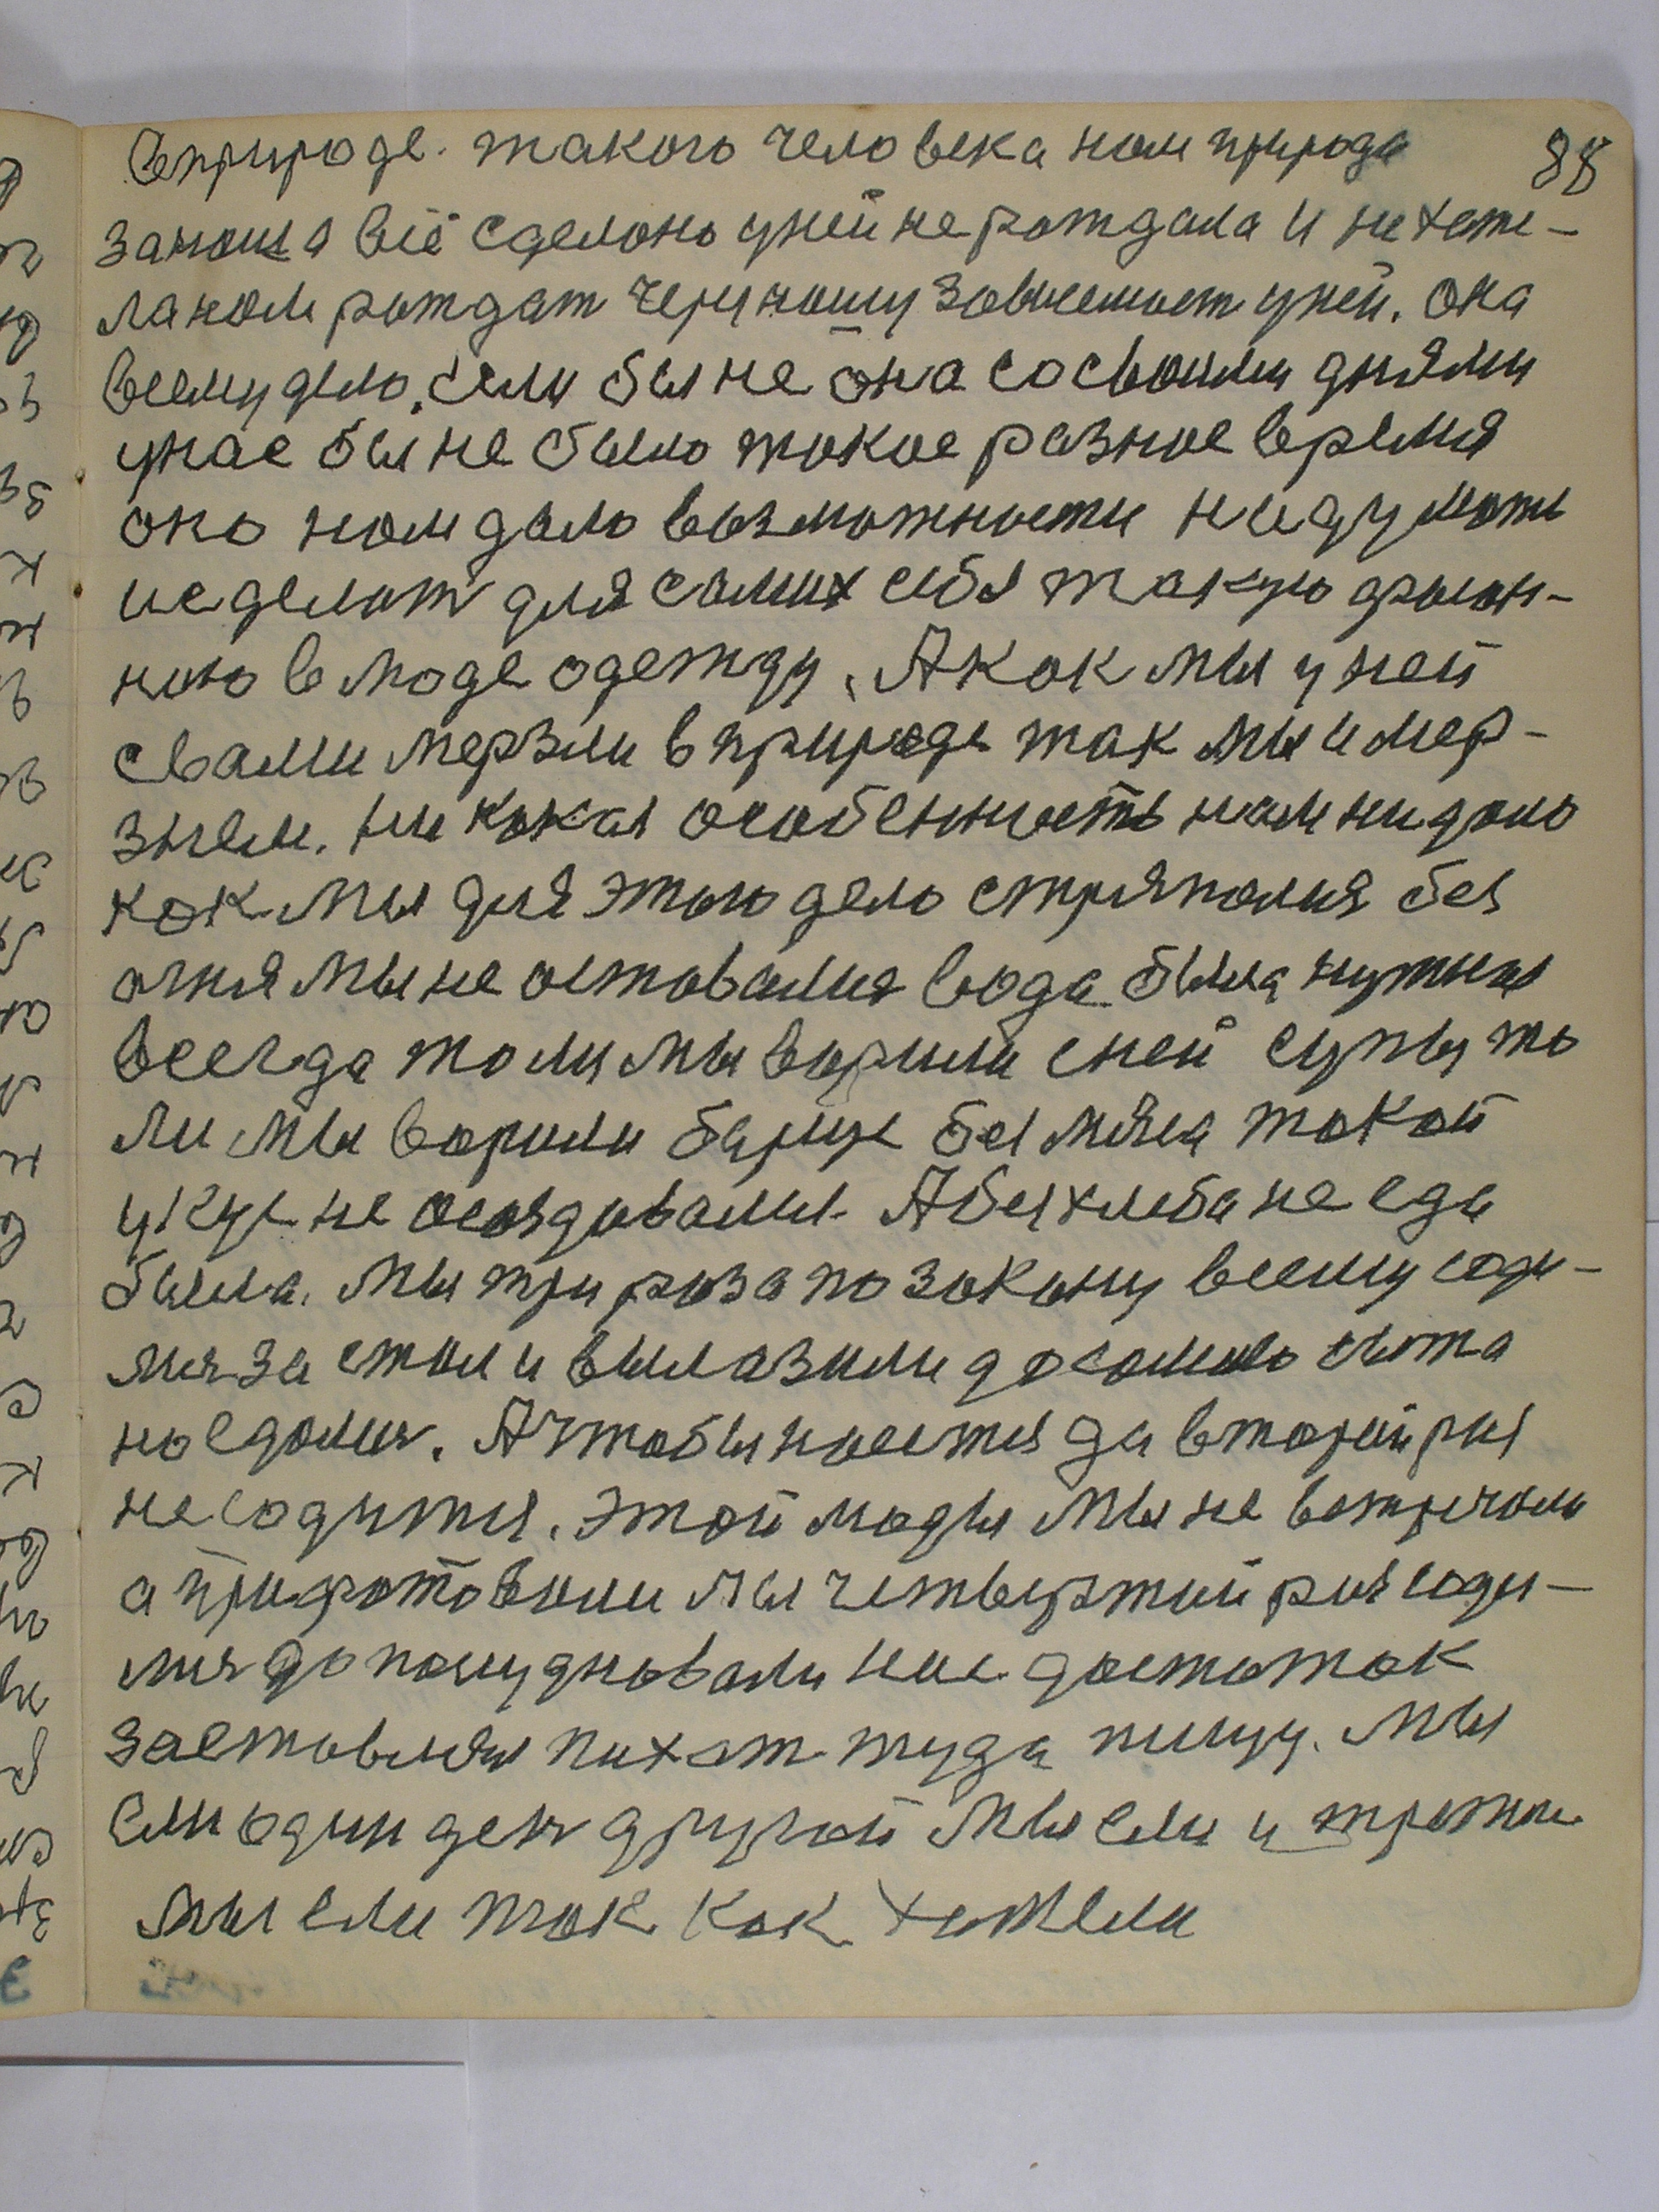 вприроде. такого человека нам природа 88
за наше всё сделоно уней не рождала и нехоте-
ла нам рождат черу нашу зависемост уней. она
всему дело. если бы не она со своими днями
унас бы не было такое разное время
оно нам дало возможности ни думать
и сделат для самих себя такую фасон-
ною в моде одежду. А как мы у ней
свами мерзли в природе так мы и мер-
знем. ни какая особенность нам ни дало
как мы для этого дело стряпался без
огня мы не оставался вода была нужная
всегда то ли мы ворили сней супы то
ли мы ворили борщ без мяса такой
укус не осоздавался. А без хлеба не еда
была. мы три раза по закону всему соди-
лися за стол и вылазили до самого сыта
наедался. А чтобы наестся да вторый раз
не содится. этой моды мы не встречали
а приготовили мы четвертый раз соди-
лися до полудновали нас достаток
заставлял пихат туда пищу. мы
ели один ден другой мы ели и третии
мы ели так как хотели